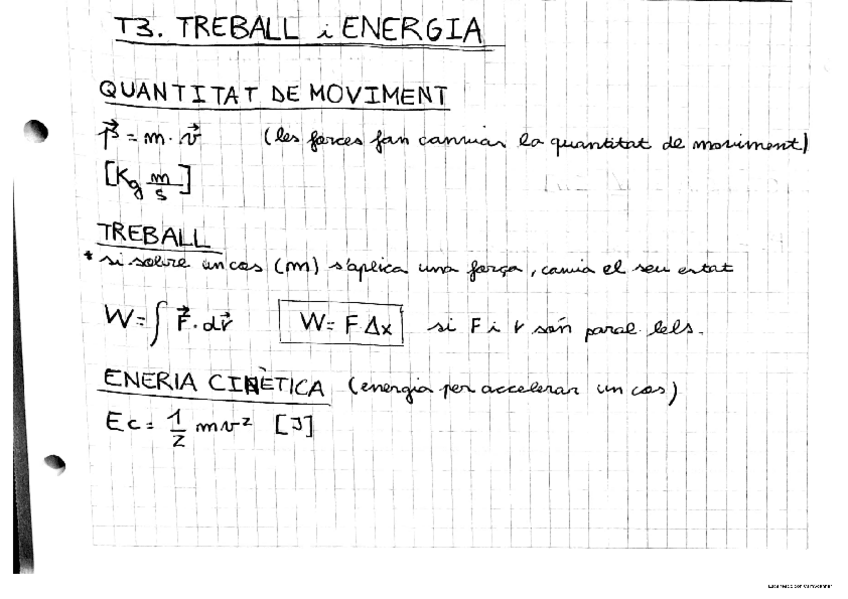 T3. TREBALL i ENERGIA
QUANTITAT DE MOVIMENT
p⃗ = m · v⃗ (les forces fan canviar la quantitat de moviment)
[Kg m/s]
TREBALL
* si sobre un cos (m) s'aplica una força, canvia el seu estat
W = ∫ F⃗ · dr⃗ W = F Δx si F i r són paral·lels.
ENERIA CINÈTICA (energia per accelerar un cos)
Ec = 1/2 mv² [J]